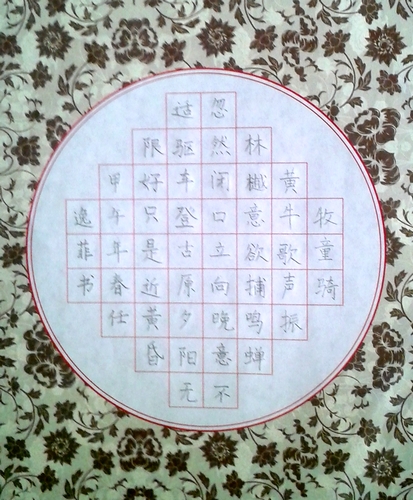 牧童骑
黄牛歌声振
林樾意欲捕鸣蝉
忽然闭口立向晚意不
适驱车登古原夕阳无
限好只是近黄昏
甲午年春任
逸菲书